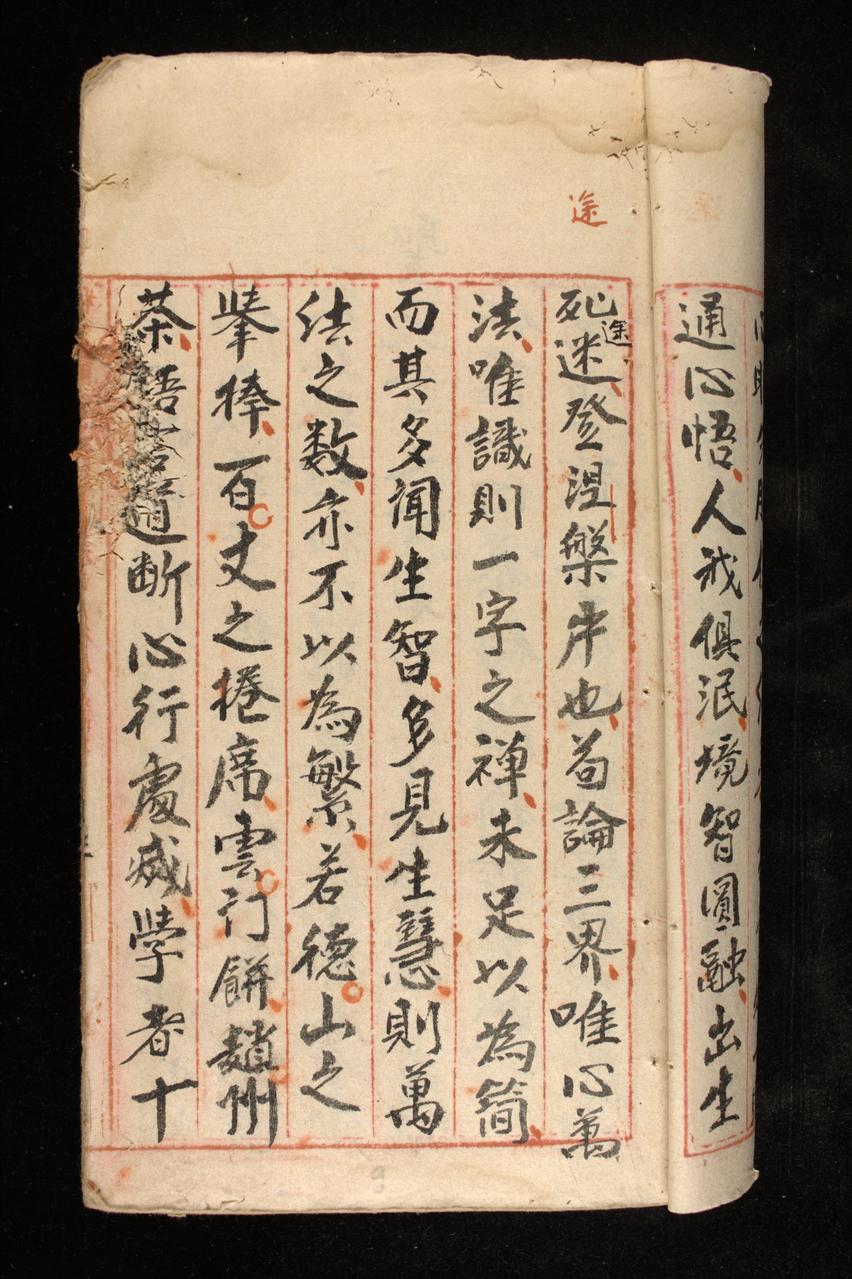 通心悟人我俱泯境智圓融出生
途
死迷登涅槃岸也苟論三界唯心萬
途
法唯識則一字之禅未足以為簡
而其多聞生智多見生慧則萬
法之数亦不以為繁若德山之
挙棒百丈之捲席雲门餅趙州
茶語言道断心行處滅學者十